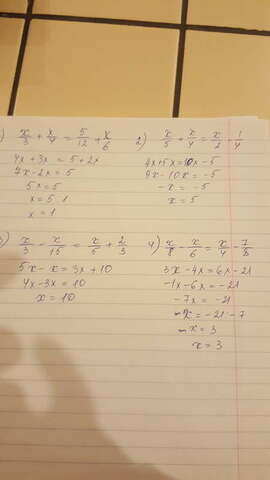 ) x/3 + x/4 = 5/12 + x/6
4x + 3x = 5 + 2x
7x - 2x = 5
5x = 5
x = 5 : 1
x = 1
2) x/5 + x/4 = x/2 - 1/4
4x + 5x = 10x - 5
9x - 10x = -5
-x = -5
x = 5
3) x/3 - x/15 = x/5 + 2/3
5x - x = 3x + 10
4x - 3x = 10
x = 10
4) x/8 - x/6 = x/4 - 7/8
3x - 4x = 6x - 21
-1x - 6x = -21
-7x = -21
-x = -21 : 7
-x = 3
x = 3